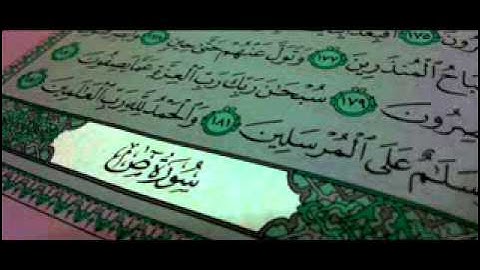 ١٧٥
الْمُنذَرِينَ ١٧٧ وَتَوَلَّ عَنْهُمْ حَتَّىٰ حِينٍ
١٧٩ سُبْحَٰنَ رَبِّكَ رَبِّ الْعِزَّةِ عَمَّا يَصِفُونَ
عَلَى الْمُرْسَلِينَ ١٨١ وَالْحَمْدُ لِلَّهِ رَبِّ الْعَٰلَمِينَ
سُورَةُ صٓ